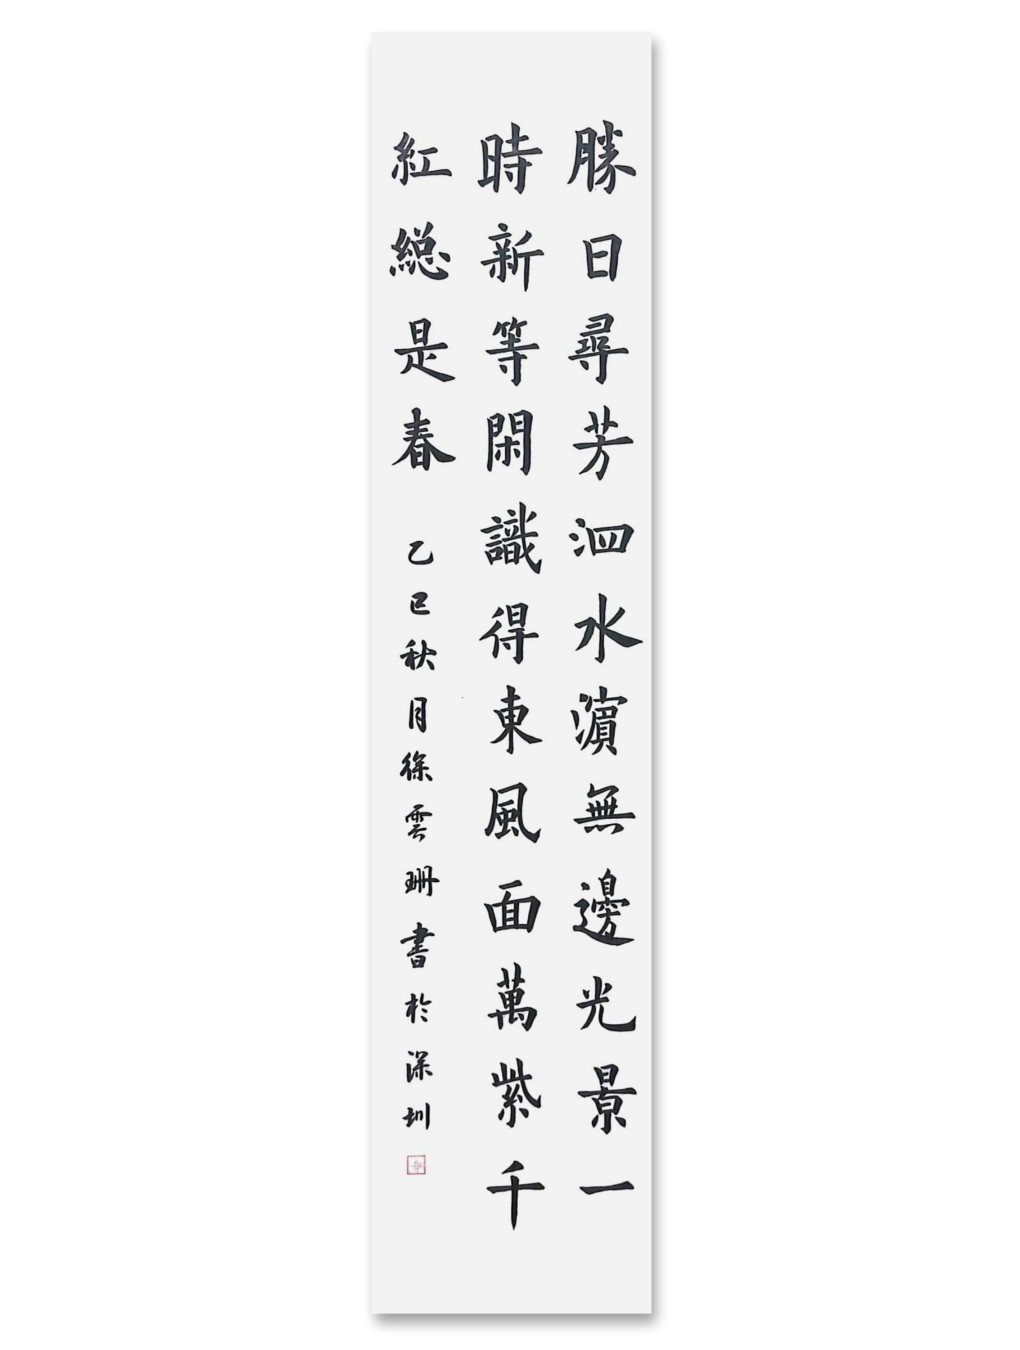 勝日尋芳泗水濵無邊光景一
時新等閑識得東風面萬紫千
紅総是春 乙巳秋月徐雲珊書於深圳